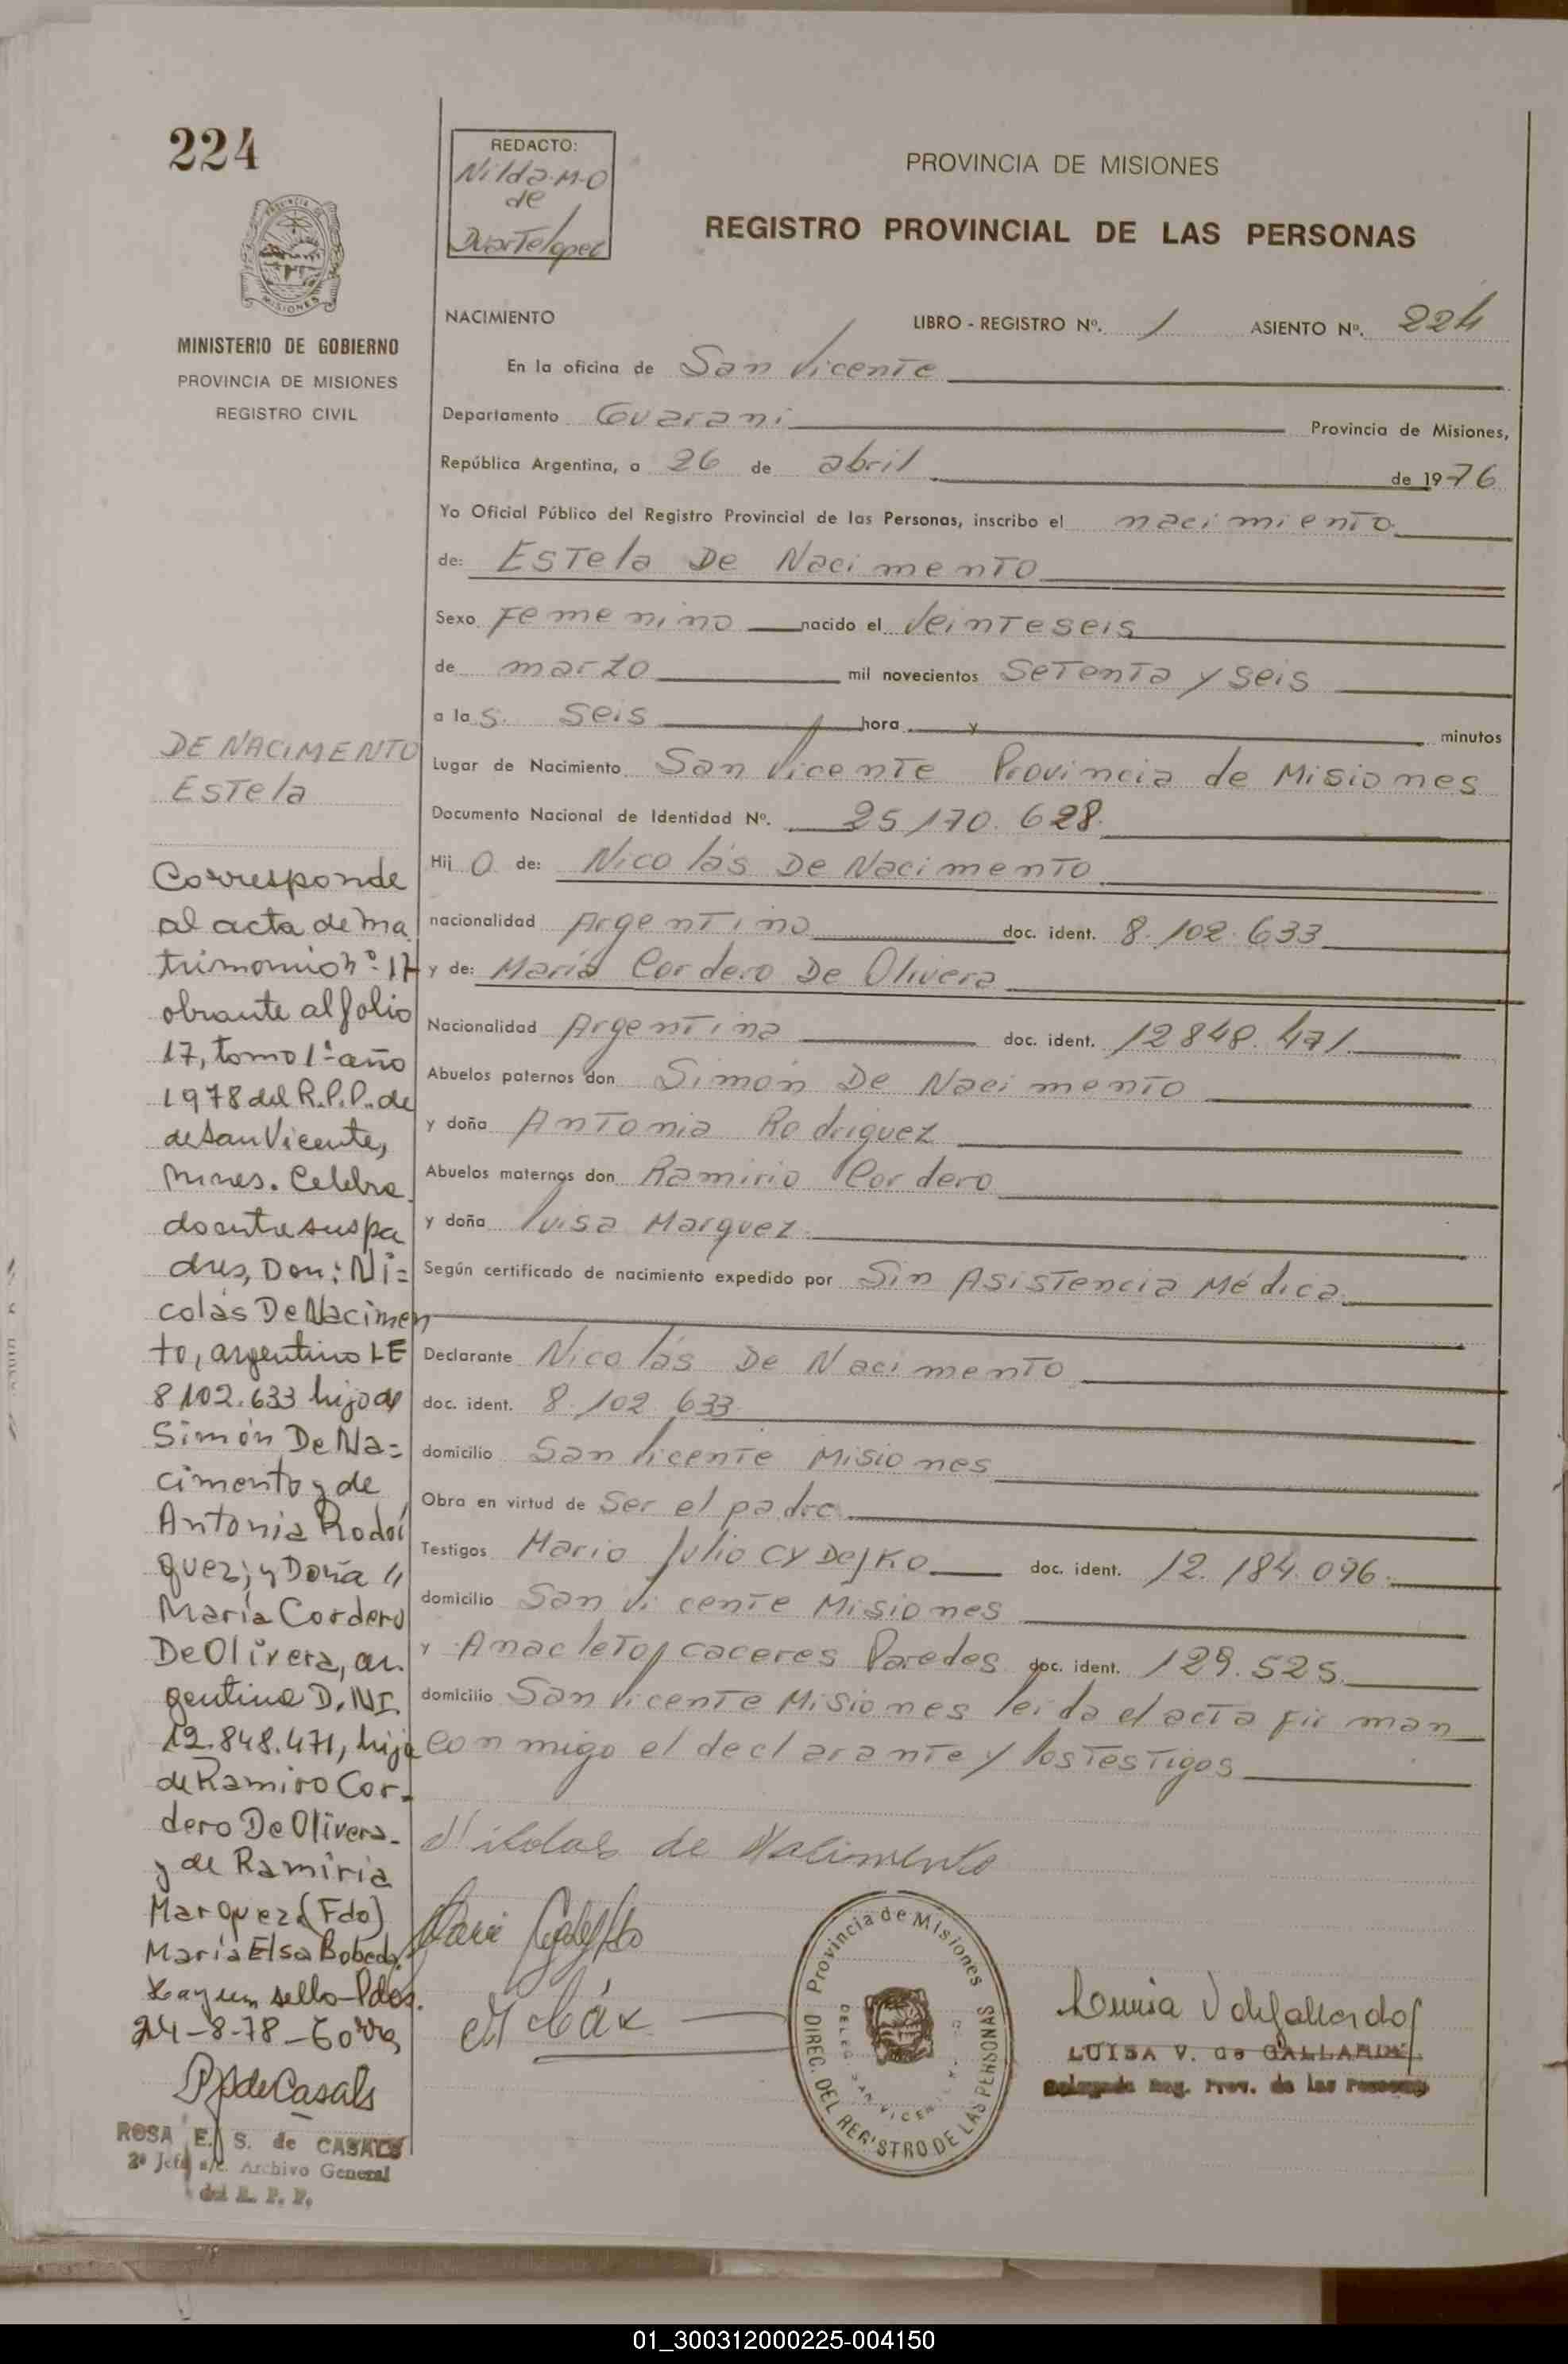 224
REDACTO:
Nilda.M.O
de
Duarte lopez
PROVINCIA DE MISIONES
REGISTRO PROVINCIAL DE LAS PERSONAS
MISIONES
MINISTERIO DE GOBIERNO
PROVINCIA DE MISIONES
REGISTRO CIVIL
NACIMIENTO
LIBRO - REGISTRO Nº. 1 ASIENTO Nº. 224
En la oficina de San Vicente
Departamento Guarani Provincia de Misiones,
República Argentina, a 26 de abril de 1976
Yo Oficial Público del Registro Provincial de las Personas, inscribo el nacimiento
de: Estela De Nacimento
Sexo Femenino nacido el Veinteseis
de marzo mil novecientos Setenta y seis
a las. Seis hora y minutos
Lugar de Nacimiento San Vicente Provincia de Misiones
Documento Nacional de Identidad Nº. 25170.628.
Hij O de: Nicolás De Nacimento
nacionalidad Argentino doc. ident. 8.102.633
y de: María Cordero De Olivera
Nacionalidad Argentina doc. ident. 12848.471
Abuelos paternos don Simón De Nacimento
y doña Antonia Rodriguez
Abuelos maternos don Ramirio Cordero
y doña luisa Marquez
Según certificado de nacimiento expedido por Sin Asistencia Médica
Declarante Nicolás De Nacimento
doc. ident. 8.102.633
domicilio San Vicente Misiones
Obra en virtud de Ser el padre
Testigos Mario Julio CYDejKo doc. ident. 12.184.096.
domicilio San vicente Misiones
y Anacleto caceres Paredes doc. ident. 129.525
domicilio San vicente Misiones leida el acta fir man
con migo el declarante y los Testigos
DE NACIMENTO
Estela
Corresponde
al acta de ma
trimonio nº 17
obrante al folio
17, tomo 1º año
1978 del R.P.P. de
de San Vicente,
Mnes. Celebra
do entre sus pa
dres, Don: Ni=
colás De Nacimen
to, argentino LE
8102.633 hijo de
Simón De Na=
cimento y de
Antonia Rodrí
quez; y Doña "
María Cordero
De Olivera, ar
gentina D.NI.
12.848.471, hija
de Ramiro Cor-
dero De Olivera-
y de Ramiria
Marquez.(Fdo)
María Elsa Bobeda.
Hay un sello-Pdas.
24-8-78-
Nikolas de Nacimento
Provincia de Misiones
DIREC. DEL REGISTRO DE LAS PERSONAS
LUISA V. de GALLARDO
Delegada Reg. Prov. de las Personas
ROSA E. S. de CASALS
2º Jefe a/c. Archivo General
del R. P. P.
01_300312000225-004150